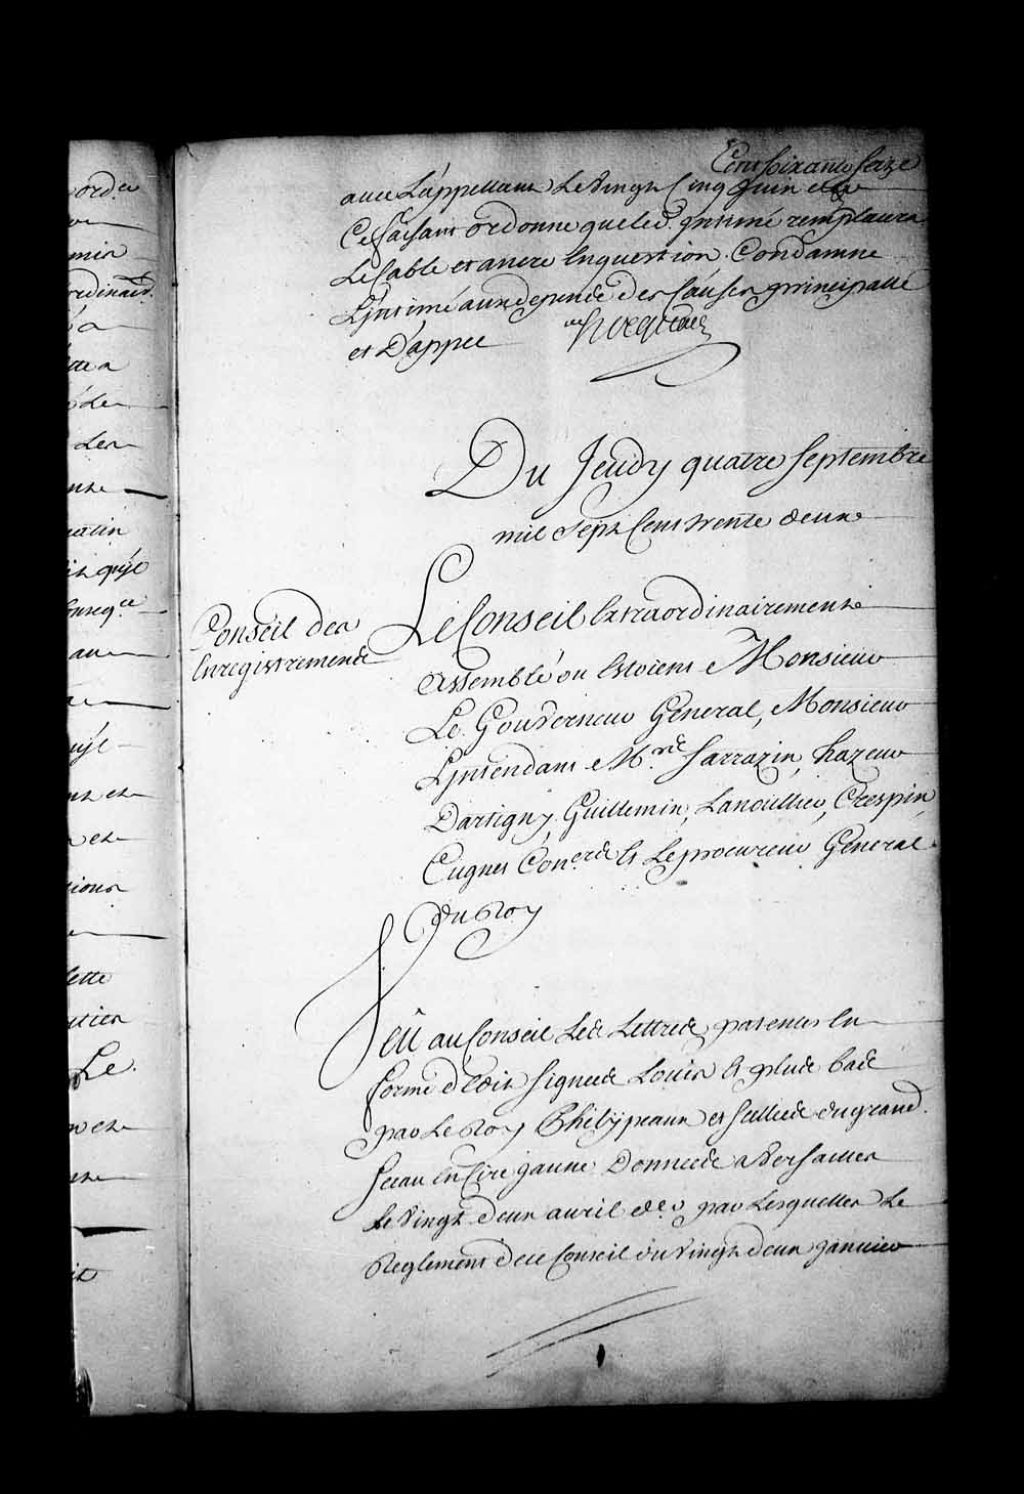 Cent Soixante Seize
avec L'appellant Le Vingt Cinq Juin
Ce faisant ordonne que led. Jntimé remplacera
Le Cable et ancre En question Condamne
L'jntimé aux depends des Causes principalle
et D'appel Hocquart
Du Jeudy quatre Septembre
mil Sept Cens trente deux
Conseil des
Enregistremens
Le Conseil Extraordinairement
Assemblé ou Estoient Monsieur
Le Gouverneur General, Monsieur
L'jntendant Mrs. Sarrazin, hazeur
Dartigny, Guillemin, Lanoullier, Crespin
Cugnet Coners. Et Le procureur General
du Roy
Veü au Conseil Les Lettres patentes En
forme d'Edit Signées Louis Et plus bas
par Le Roy Phelypeaux et Scellées du grand
Sceau En Cire jaune Données a Versailles
Le Vingt deux avril dr. par Lesquelles Le
Reglement de ce Conseil du Vingt deux Janvier
ord.re
Les
matin
Le